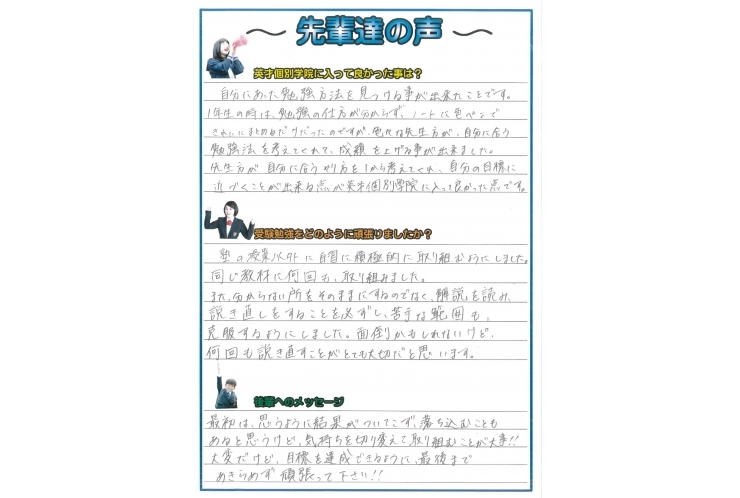 ～ 先輩達の声 ～
英才個別学院に入って良かった事は？
自分にあった勉強方法を見つける事が出来たことです。
1年生の時は、勉強の仕方が分からず、ノートに色ペンで
きれいにまとめるだけだったのですが、色々な先生方が、自分に合う
勉強法を考えてくれて、成績を上げる事が出来ました。
先生方が自分に合うやり方を1から考えてくれ、自分の目標に
近づくことが出来る点が英才個別学院に入って良かった点です。
受験勉強をどのように頑張りましたか？
塾の授業以外に自習に積極的に取り組むようにしました。
同じ教材に何回も、取り組みました。
また、分からない所をそのままにするのでなく、解説を読み、
説き直しをすることを必ずし、苦手な範囲も、
克服するようにしました。面倒かもしれないけど、
何回も説き直すことがとても大切だと思います。
後輩へのメッセージ
最初は、思うように結果がついてこず、落ち込むことも
あると思うけど、気持ちを切り変えて取り組むことが大事!!
大変だけど、目標を達成できるように、最後まで
あきらめず頑張って下さい!!